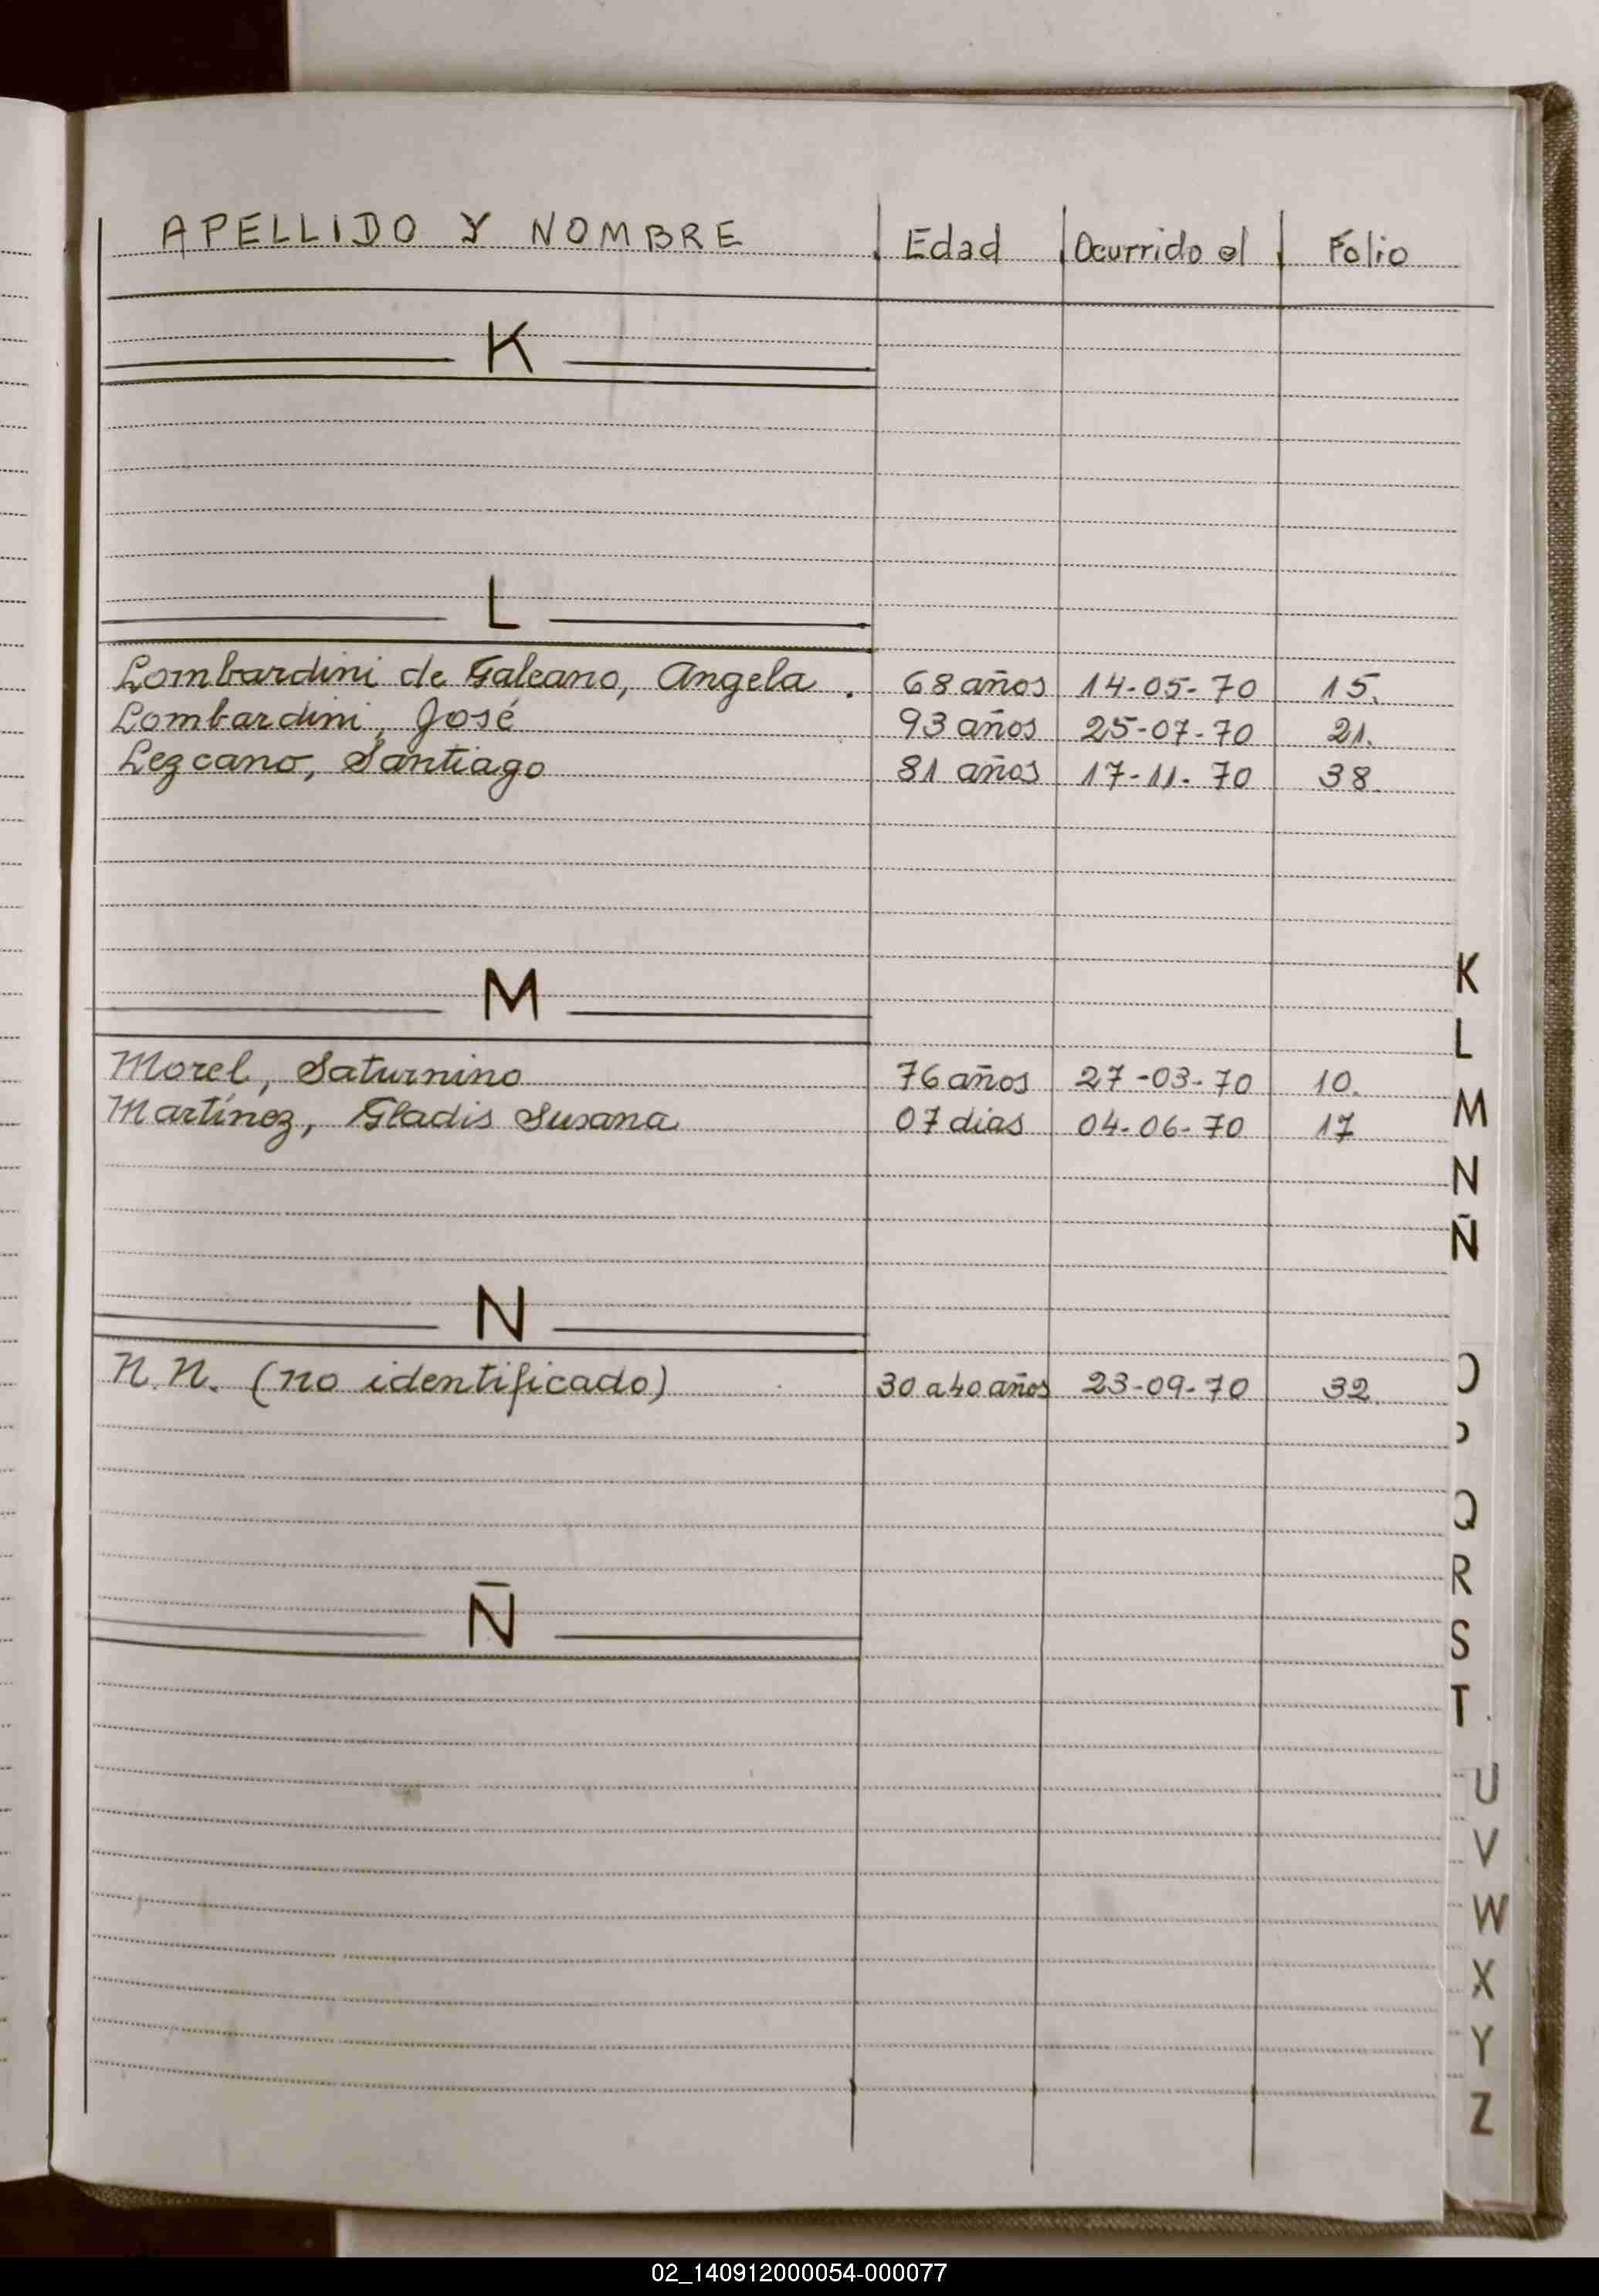 APELLIDO Y NOMBRE Edad Ocurrido el Folio
K
L
Lombardini de Galeano, Angela. 68 años 14-05-70 15.
Lombardini, José 93 años 25-07-70 21.
Lezcano, Santiago 81 años 17-11-70 38.
M
Morel, Saturnino 76 años 27-03-70 10.
Martínez, Gladis Susana 07 dias 04-06-70 17
N
N.N. (no identificado) 30 a 40 años 23-09-70 32.
Ñ
K
L
M
N
Ñ
O
P
Q
R
S
T
U
V
W
X
Y
Z
02_140912000054-000077